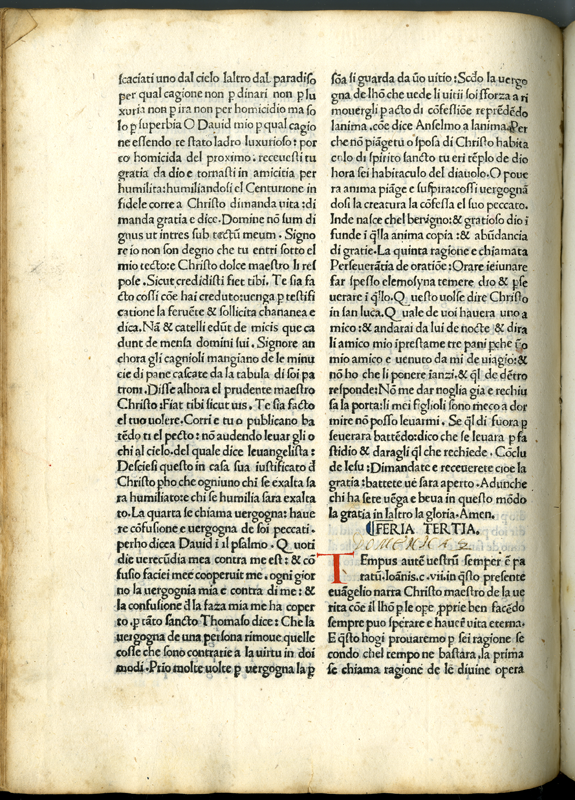 scaciati uno dal cielo laltro dal paradiso
per qual cagione non ꝑ dinari non ꝑ lu
xuria non ꝑ ira non per homicidio ma so
lo ꝑ superbia O Dauid mio ꝑ qual cagio
ne essendo te stato ladro luxurioso: por
co homicida del proximo: receuesti tu
gratia da dio e tornasti in amicitia per
humilita:humiliandosi el Centurione in
fidele corre a Christo dimanda uita :di
manda gratia e dice. Domine nõ sum di
gnus ut intres sub tectũ meum. Signo
re io non son degno che tu entri sotto el
mio tecto:e Christo dolce maestro li res
pose. Sicut credidisti fiet tibi. Te sia fa
cto cossi cõe hai creduto:uenga ꝑ testifi
catione la feruẽte & sollicita chananea e
dica. Nã & catelli edũt de micis que ca
dunt de mensa domini sui. Signore an
chora gli cagnioli mangiano de le minu
cie di pane cascate da la tabula di soi pa
troni. Disse alhora el prudente maestro
Christo :Fiat tibi sicut uis. Te sia facto
el tuo uolere. Corri e tu o publicano ba
tẽdo ti el pecto: nõ audendo leuar gli o
chi al cielo.del quale dice leuangelista:
Descẽsit questo in casa sua iustificato đ
Christo pho che ogniuno chi se exalta sa
ra humiliato:e chi se humilia sara exalta
to. La quarta se chiama uergogna: haue
re cõfusione e uergogna de soi peccati.
perho dicea Dauid i il psalmo. Quoti
die uerecũdia mea contra me est: & cõ
fusio faciei mee cooperuit me. ogni gior
no la uergognia mia e contra di me: &
la confusione đ la faza mia me ha coper
to. ꝑ tãto sancto Thomaso dice: Che la
uergogna de una persona rimoue quelle
cose che sono contrarie a la uirtu in doi
modi. Prio molte uolte ꝑ uergogna la ꝑ
sõa si guarda da ũo uitio: Scđo la uergo
gna de lhõ che uede li uitii soi sforza a ri
mouergli ꝑ acto di cõfesiõe reprẽdẽdo
lanima. cõe dice Anselmo a lanima. Per
che nõ piãge tu o sposa di Christo habita
colo di spirito sancto tu eri tẽplo de dio
hora sei habitaculo del diauolo. O poue
ra anima piãge e suspira:cossi uergognã
dosi la creatura la cõfessa el suo peccato.
Inde nasce chel benigno:& gratioso dio i
funde i q̃lla anima copia: & abũdancia
di gratie. La quinta ragione e chiamata
Perseuerãtia de oratiõe: Orare ieiunare
far spesso elemosyna temere dio & ꝑse
uerare i q̃llo. Questo uolse dire Christo
in san luca. Quale de uoi hauera uno a
mico: & andarai da lui de nocte & dira
li amico mio iprestame tre pani pche ũo
mio amico e uenuto da mi de uiagio:&
nõ ho che li ponere ianzi. & q̃l de dẽtro
responde: Nõ me dar noglia gia e rechiu
sa la porta:li mei figlioli sono meco a dor
mire nõ posso leuarmi. Se q̃l di fuora ꝑ
seuerara battẽdo:dico che se leuara ꝑ fa
stidio & daragli q̃l che rechiede. Cõclu
de Iesu : Dimandate e receuerete cioe la
gratia: battete ue sara aperto. Adunche
chi ha sete uẽga e beua in questo mõdo
la gratia in laltro la gloria. Amen.
¶FERIA TERTIA.
DOMENICA 2
Tempus autẽ uestrũ semper ẽ pa
ratũ. Ioãnis.c.vii.in q̃sto presente
euãgelio narra Christo maestro de la ue
rita cõe il lhõ ꝑ le ope ꝓprie ben facẽdo
sempre puo sperare e hauer uita eterna.
E q̃sto hogi prouaremo ꝑ sei ragione se
condo chel tempo ne bastara, la prima
se chiama ragione de le diuine opera